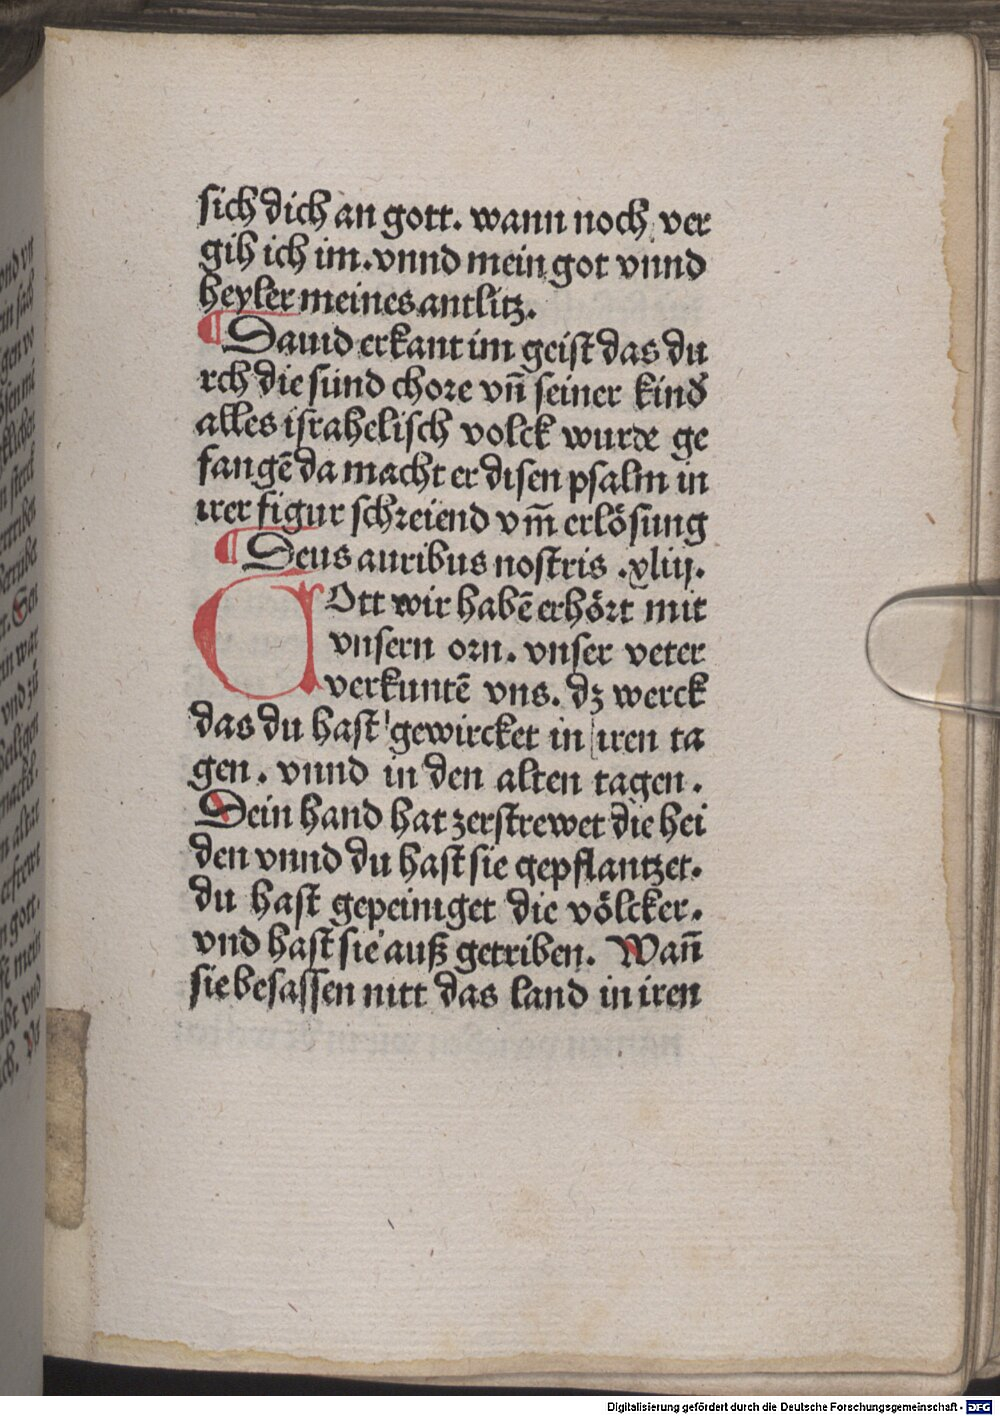 sich dich an gott. wann noch ver
gih ich im. vnnd mein got vnnd
heyler meines antlitz.
¶ Dauid erkant im geist das du
rch die sünd chore vñ seiner kind
alles israhelisch volck wurde ge
fangē da macht er disen psalm in
irer figur schreiend vm̃ erlösung
¶ Deus auribus nostris .xliij.
GOtt wir habē erhört mit
vnsern orn. vnser veter
verkuntē vns. dz werck
das du hast gewircket in iren ta
gen. vnnd in den alten tagen.
Dein hand hat zerstrewet die hei
den vnnd du hast sie gepflantzet.
du hast gepeiniget die völcker.
vnd hast sie auß getriben. Wañ
sie besassen nitt das land in iren
Digitalisierung gefördert durch die Deutsche Forschungsgemeinschaft - DFG